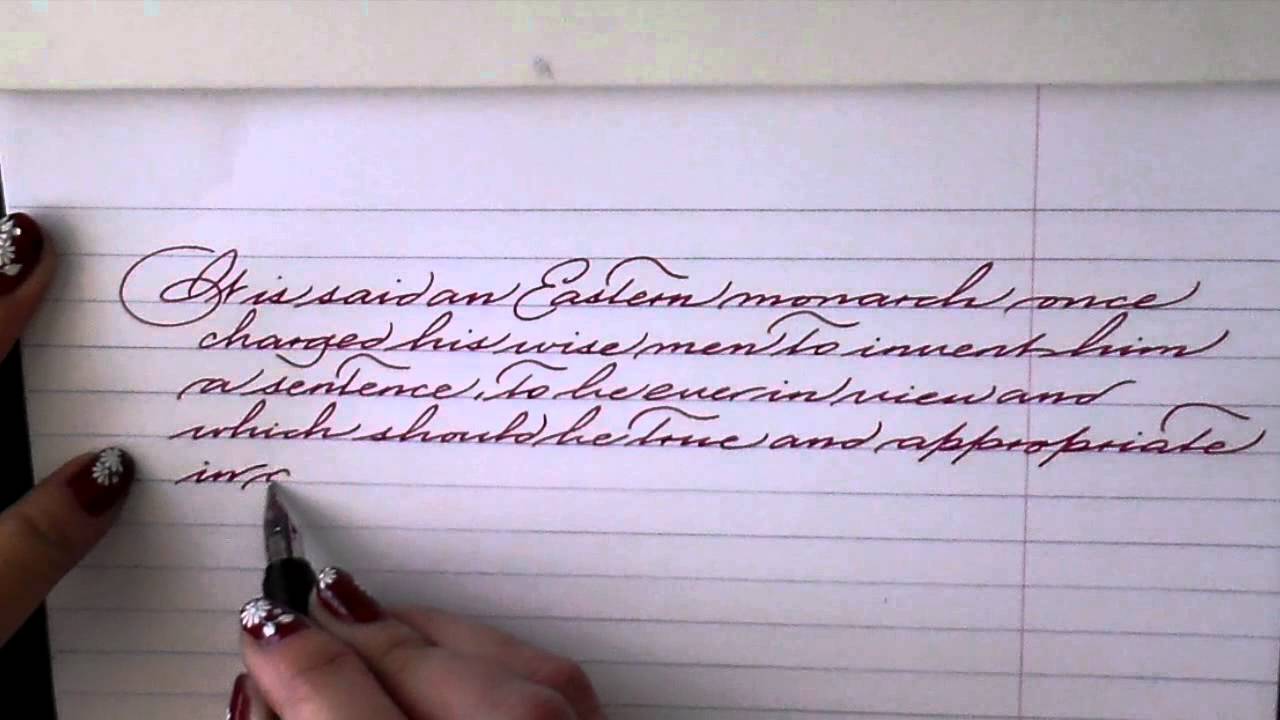 It is said an Eastern monarch once
charged his wise men to invent him
a sentence, to be ever in view and
which should be true and appropriate
in